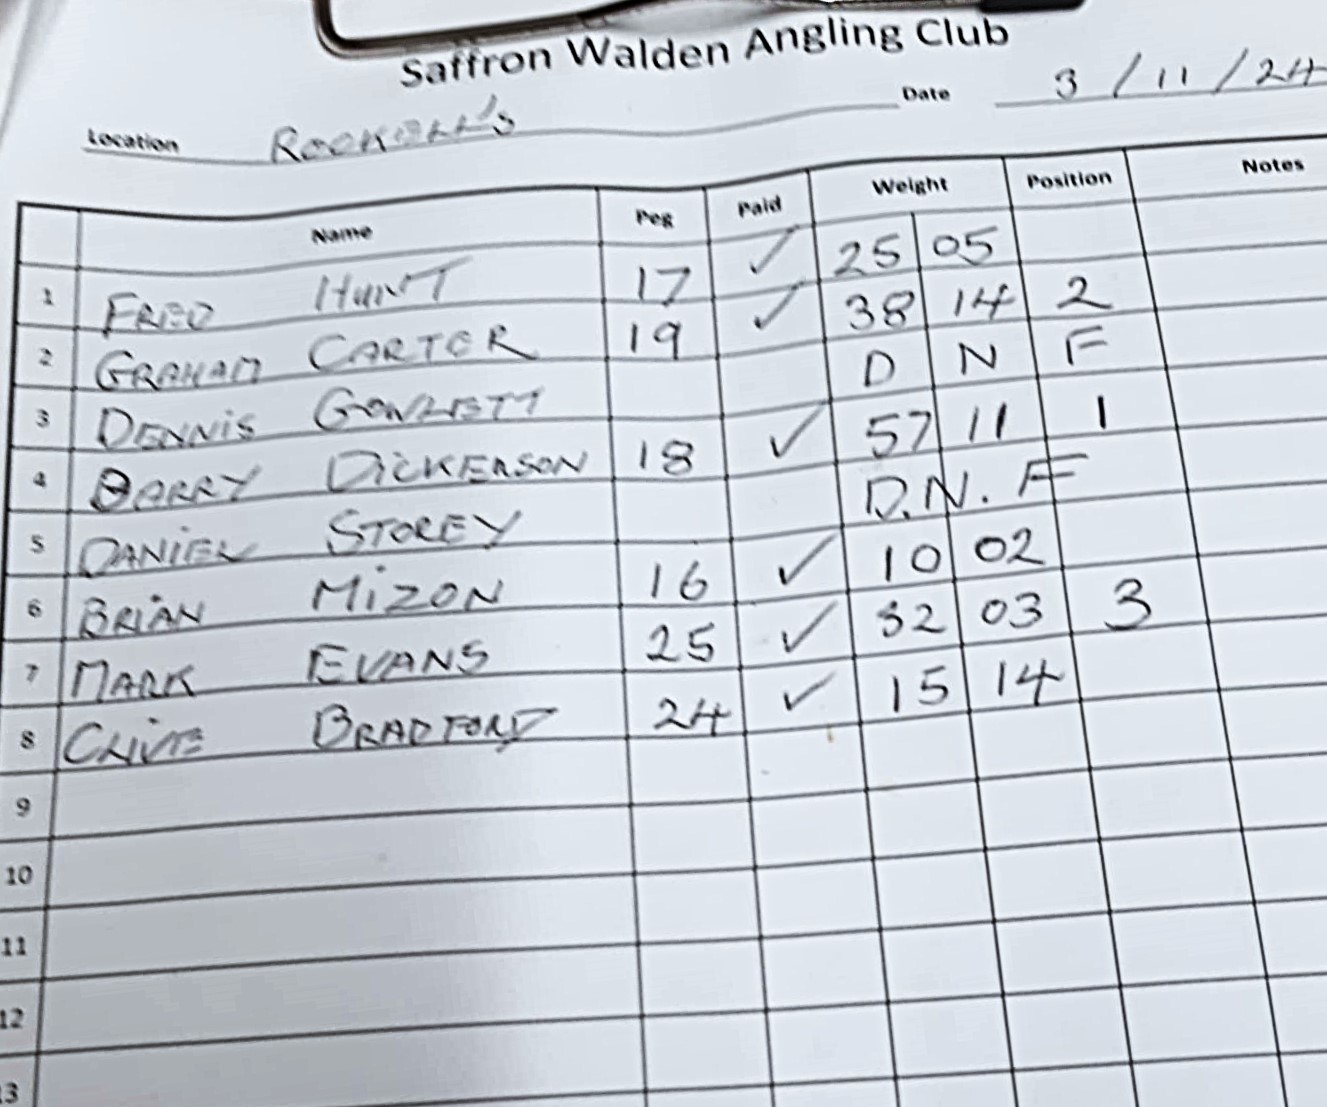 Saffron Walden Angling Club
Location Rockells Date 3/11/24
Name Peg Paid Weight Position Notes
1 FRED HUNT 17 ✓ 25 05
2 GRAHAM CARTER 19 ✓ 38 14 2
3 DENNIS GOWLETT D N F
4 BARRY DICKERSON 18 ✓ 57 11 1
5 DANIEL STOREY D.N.F
6 BRIAN MIZON 16 ✓ 10 02
7 MARK EVANS 25 ✓ 32 03 3
8 CLIVE BRADFORD 24 ✓ 15 14
9
10
11
12
13